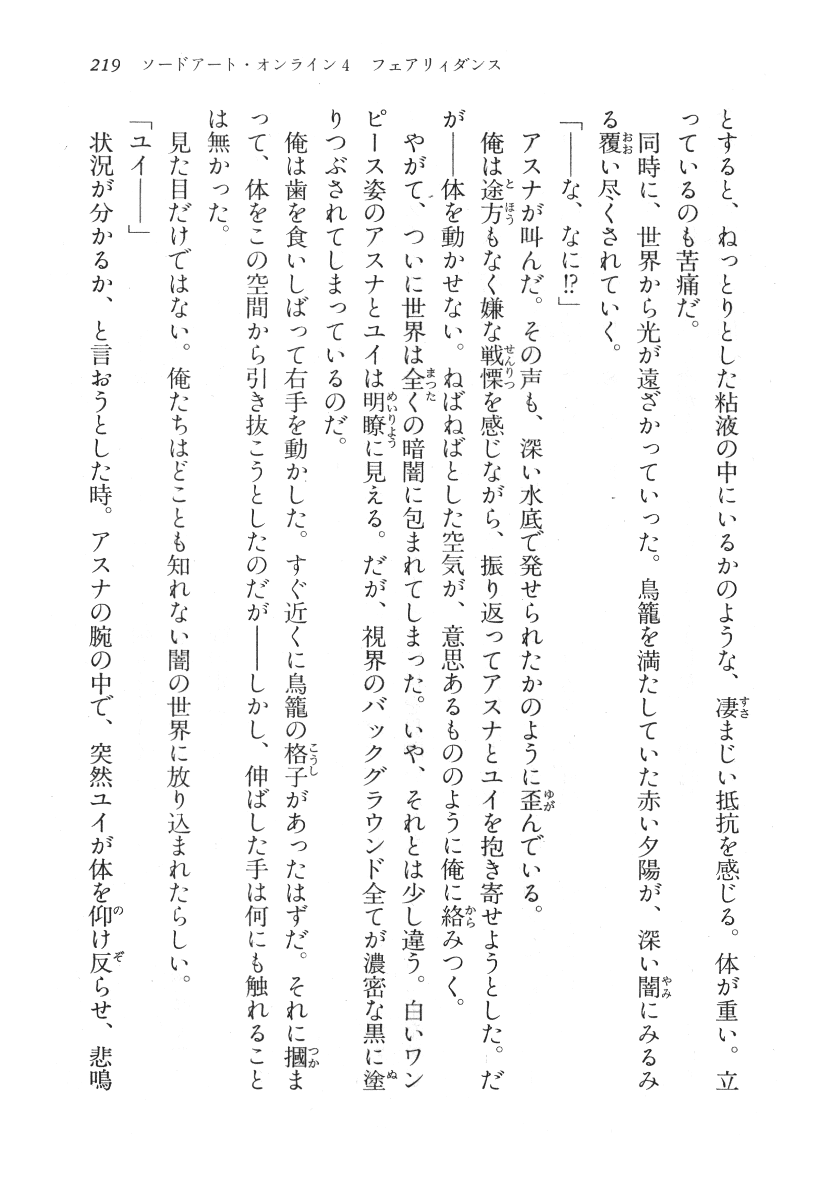 219 ソードアート・オンライン4 フェアリィダンス
とすると、ねっとりとした粘液の中にいるかのような、凄まじい抵抗を感じる。体が重い。立
っているのも苦痛だ。
同時に、世界から光が遠ざかっていった。鳥籠を満たしていた赤い夕陽が、深い闇にみるみ
る覆い尽くされていく。
「――な、なに!?」
アスナが叫んだ。その声も、深い水底で発せられたかのように歪んでいる。
俺は途方もなく嫌な戦慄を感じながら、振り返ってアスナとユイを抱き寄せようとした。だ
が――体を動かせない。ねばねばとした空気が、意思あるもののように俺に絡みつく。
やがて、ついに世界は全くの暗闇に包まれてしまった。いや、それとは少し違う。白いワン
ピース姿のアスナとユイは明瞭に見える。だが、視界のバックグラウンド全てが濃密な黒に塗
りつぶされてしまっているのだ。
俺は歯を食いしばって右手を動かした。すぐ近くに鳥籠の格子があったはずだ。それに摑ま
って、体をこの空間から引き抜こうとしたのだが――しかし、伸ばした手は何にも触れること
は無かった。
見た目だけではない。俺たちはどことも知れない闇の世界に放り込まれたらしい。
「ユイ――」
状況が分かるか、と言おうとした時。アスナの腕の中で、突然ユイが体を仰け反らせ、悲鳴